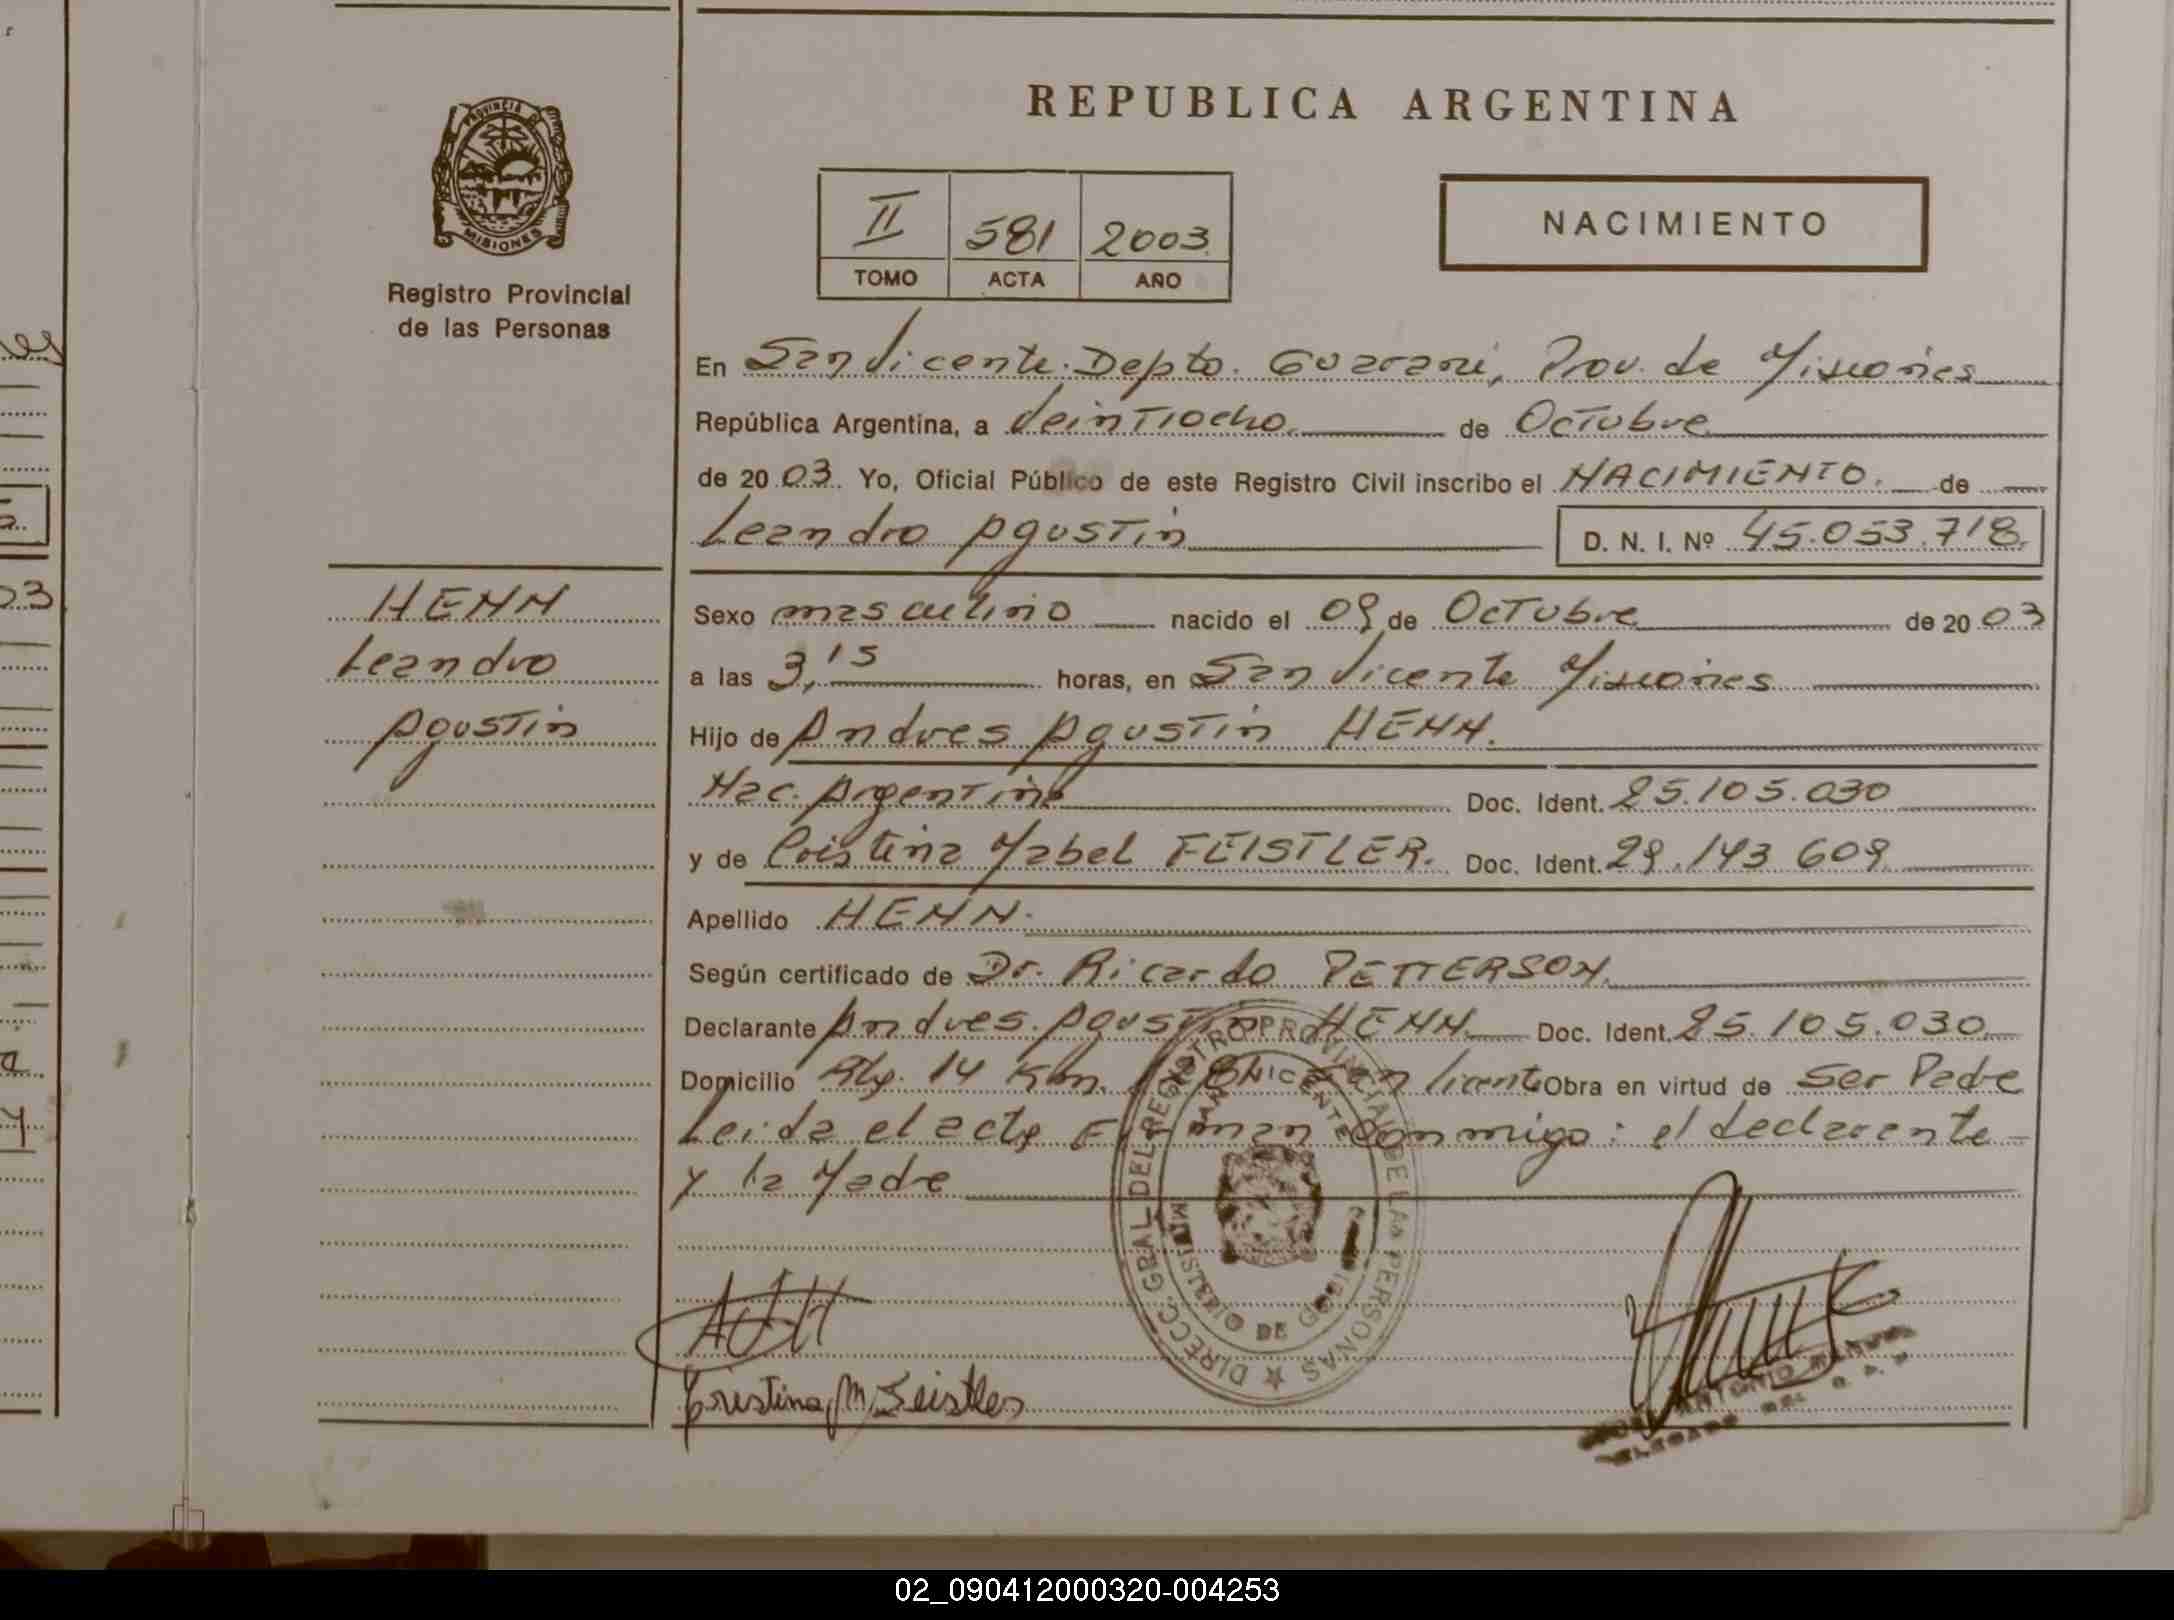 REPUBLICA ARGENTINA
PROVINCIA DE
MISIONES
Registro Provincial
de las Personas
II 581 2003
TOMO ACTA AÑO
NACIMIENTO
En San Vicente. Depto. Guarani, Prov. de Misiones
República Argentina, a Veintiocho de Octubre
de 2003. Yo, Oficial Público de este Registro Civil inscribo el NACIMIENTO. de
Leandro Agustin D. N. I. Nº 45.053.718.
HENN
Leandro
Agustin
Sexo masculino nacido el 09 de Octubre de 2003
a las 3,15 horas, en San Vicente Misiones
Hijo de Andres Agustin HENN.
Nac. Argentina Doc. Ident. 25.105.030
y de Cristina Mabel FEISTLER. Doc. Ident. 29.143 609
Apellido HENN.
Según certificado de Dr. Ricardo PETTERSON.
Declarante Andres Agustin HENN Doc. Ident. 25.105.030
Domicilio Rta. 14 Km. San Vicente Obra en virtud de Ser Padre
Leida el acta Firman conmigo: el declarante
y la Madre
DIRECC. GRAL DEL REGISTRO PROVINCIAL DE LAS PERSONAS
SAN VICENTE
MINISTERIO DE
Cristina M Feistler
ANTONIO
DELEGADO DEL R. P.
02_090412000320-004253